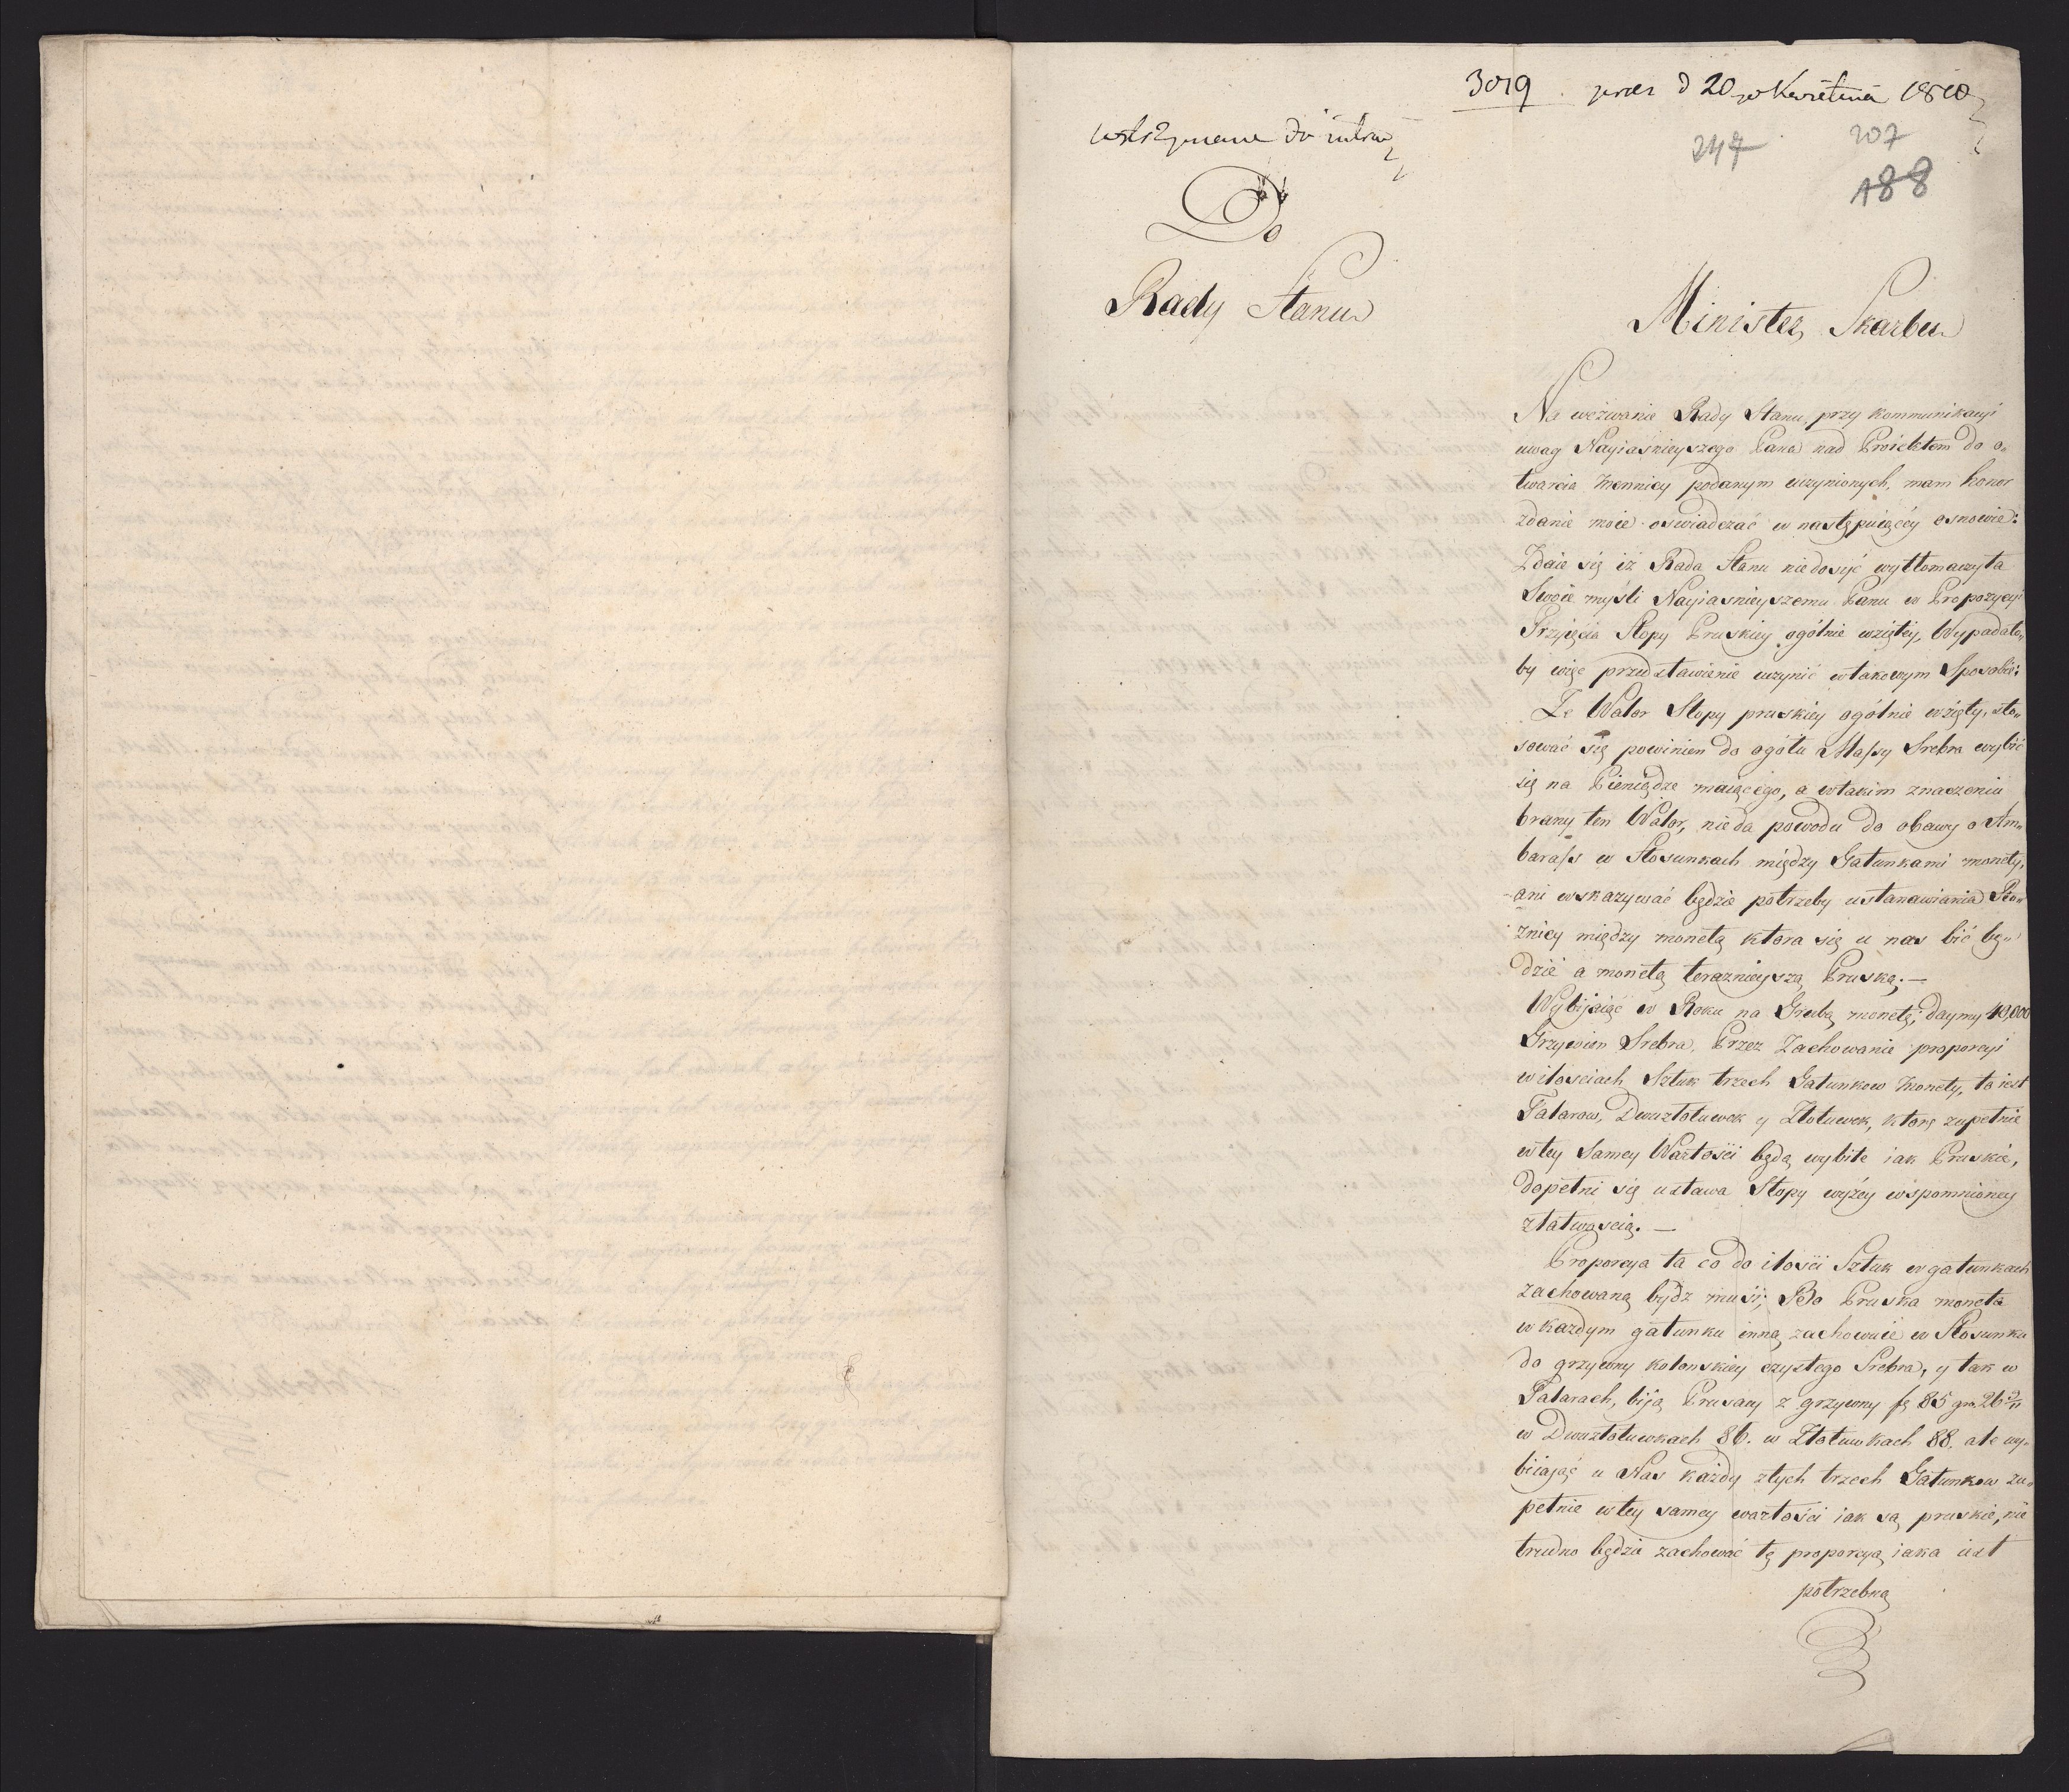 3019 prez d 20go Kwietnia 1810
wstrzymane do jutra
247 207
188
Do
Rady Stanu
Minister Skarbu
Na wezwanie Rady Stanu, przy kommunikacyi
uwag Nayiasnieyszego Pana nad Proiektem do o„
twarcia Mennicy podanym uczynionych, mam honor
zdanie moie oswiadczać w następuiącéy osnowie:
Zdaie się iż Rada Stanu niedosyć wytłomaczyła
Swoie myśli Nayiasnieyszemu Panu w Propozycyi
Przyięcia Stopy Pruskiey ogólnie wziętey, Wypadało„
by więc przedstawienie uczynić w takowym Sposobie:
Ze Walor Stopy pruskiey ogólnie wzięty, sto„
sować się powinien do ogółu Massy Srebra wybić
się na Pieniądze maiącego, a w takim znaczeniu
brany ten Walor, nieda powodu do obawy o Am„
barass w Stosunkach między Gatunkami monety,
ani wskazywać będzie potrzeby ustanawiania Ró„
żnicy między monetą ktora się u nas bić bę„
dzie a monetą teraznieyszą Pruską. —
Wybijaiąc w Roku na Grubą monetę, daymy 40,000
Grzywien Srebra, Przez Zachowanie proporcyi
w ilosciach Sztuk trzech Gatunkow Monety, to iest
Talarow, Dwuzłotuwek y Złotuwek, ktorę zupełnie
w tey Samey Wartości będą wybite iak Pruskie,
dopełni się ustawa Stopy wyżey wspomnioney
z łatwością. —
Proporcya ta co do ilości Sztuk w gatunkach
zachowaną bydz musi; Bo Pruska moneta
w każdym gatunku inną zachowuie w Stosunku
do grzywny kolonskiey czystego Srebra, y tak w
Talarach, biją Prusacy z grzywny fl 85 gr. 26 2/11
w Dwuzłotuwkach 86. w Złotuwkach 88. ale wy„
biiając u Nas każdy z tych trzech Gatunkow zu„
pełnie w tey samey wartości iak są pruskie, nie
trudno będzie zachować tę proporcyą iaka iest
potrzebną